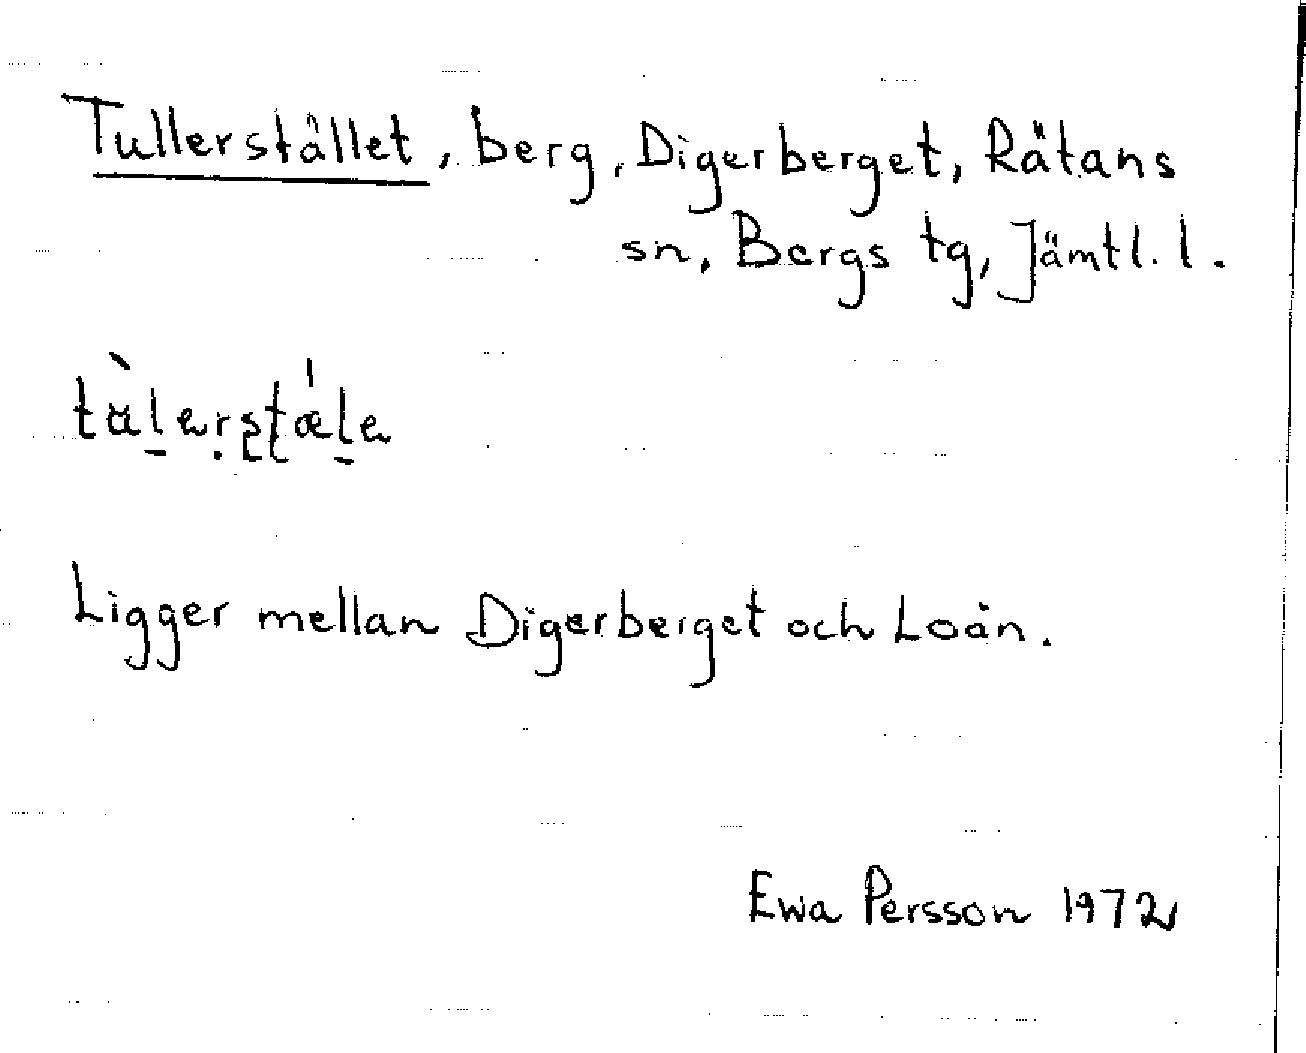 Tullerstället, berg, Digerberget, Rätans
sn, Bergs tg, Jämtl. l.
Ligger mellan Digerberget och Loån.
Ewa Persson 1972